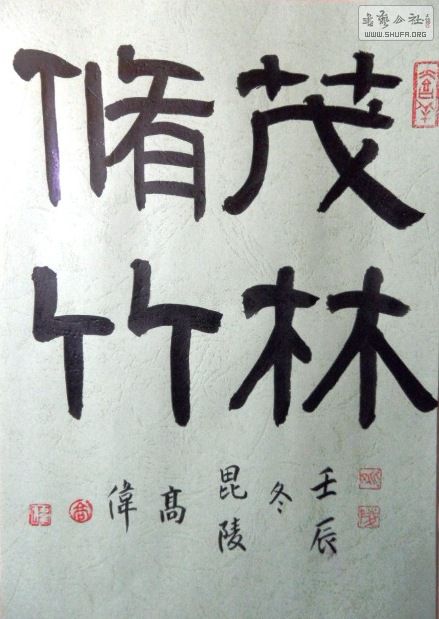 茂林
脩竹
壬辰
冬
毘陵
髙
偉
書藝公社
WWW.SHUFA.ORG